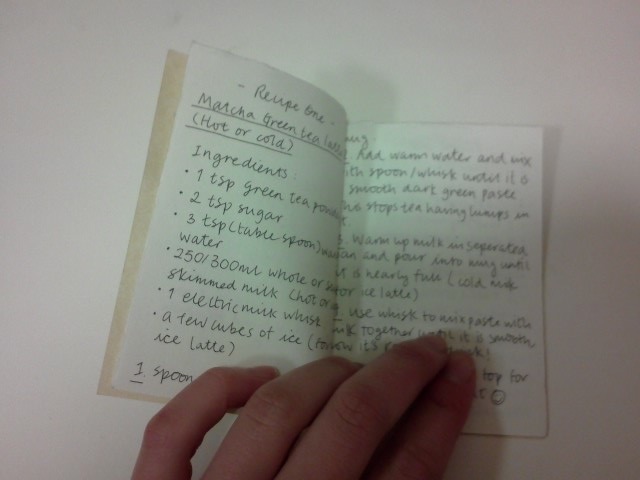 - Recipe One -
Matcha Green tea latte
(Hot or cold)
Ingredients:
• 1 tsp Green tea powde
• 2 tsp sugar
• 3 tsp (table spoon)
water
• 250/300ml whole or se
skimmed milk (hot or
• 1 electric milk whisk
• a few cubes of ice (
ice latte)
1. spoon
mug
Add warm water and mix
ith spoon/whisk until it is
smooth dark green paste
his stops tea having lumps in
t.
3. Warm up milk in seperated
an and pour into mug until
it is nearly full (cold milk
for ice latte)
use whisk to mix paste with
milk together until it is smooth
top for